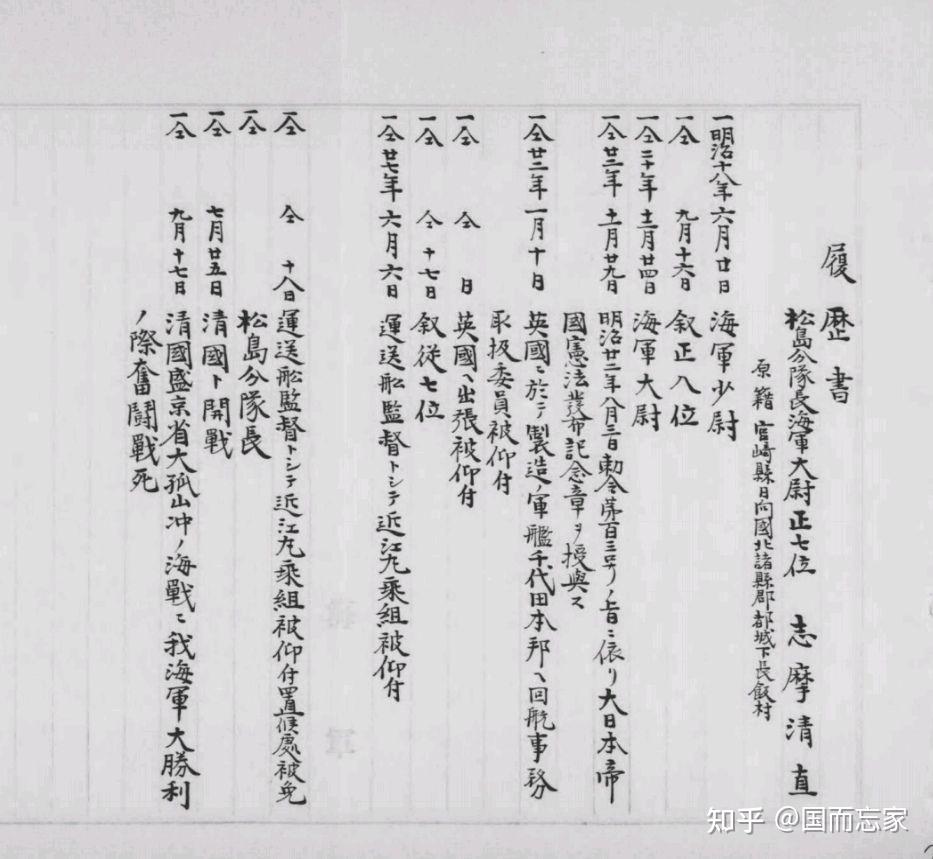 履歴書
松島分隊長海軍大尉正七位 志摩清直
原籍 宮崎縣日向國北諸縣郡都城下長飯村
一明治十八年六月廿日 海軍少尉
一仝 九月十六日 叙正八位
一仝二十年十二月廿四日 海軍大尉
一仝廿二年十一月廿九日 明治廿二年八月三日勅令第百三号ノ旨ニ依リ大日本帝
國憲法發布記念章ヲ授與ス
一仝廿三年一月十日 英國ニ於テ製造ノ軍艦千代田本邦ヘ回航事務
取扱委員被仰付
一仝 仝日 英國ヘ出張被仰付
一仝 仝十七日 叙従七位
一仝廿七年六月六日 運送舩監督トシテ近江丸乗組被仰付
一仝 仝十八日 運送舩監督トシテ近江丸乗組被仰付置候處被免
一仝 松島分隊長
一仝 七月廿五日 清國ト開戰
一仝 九月十七日 清國盛京省大孤山冲ノ海戰ニ我海軍大勝利
ノ際奮鬪戰死
知乎 @国而忘家